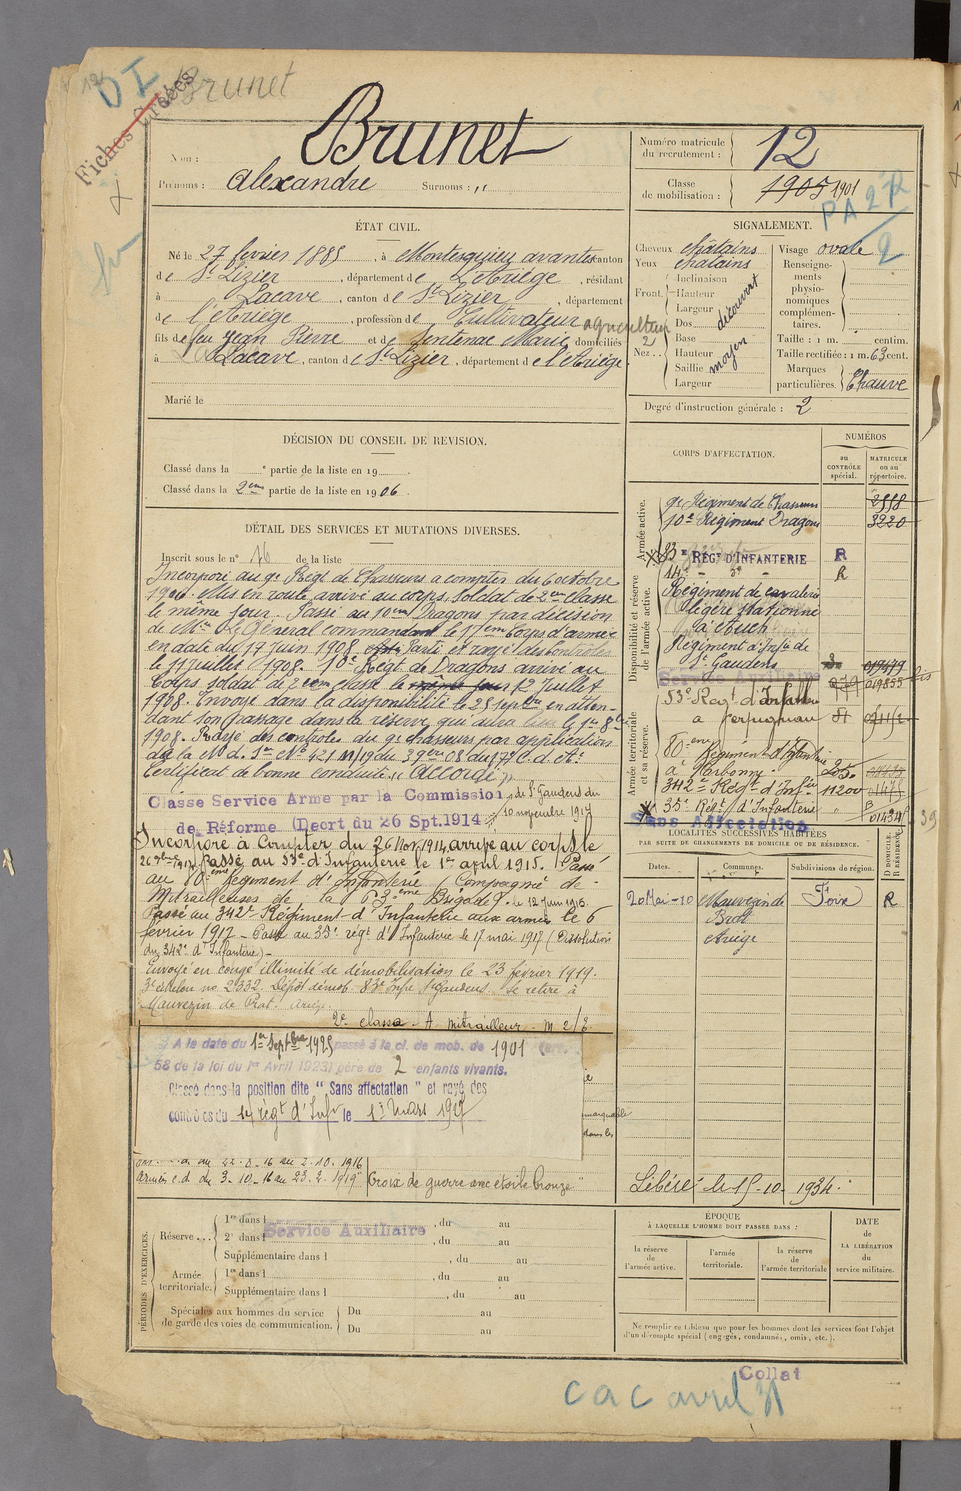 Brunet
Fiches Croées
Nom :
Brunet
Prénoms : Alexandre Surnoms : ,,
Numéro matricule
du recrutement :
12
Classe
de mobilisation :
1905 1901
PA 272
ÉTAT CIVIL.
Né le 27 fevrier 1885, à Montesquieu avantes canton
de St Lizier, département de L'Ariège, résidant
à Lacave, canton de St Lizier, département
de l'Ariège, profession de Cultivateur agriculteur
fils de feu Jean Pierre et de Sentenac Marie domiciliés
à Lacave, canton de St Lizier, département de l'Ariège.
Marié le
SIGNALEMENT.
Cheveux châtains
Yeux châtains
Front.
Inclinaison
Hauteur
Largeur
découvert
Nez...
Dos
Base
Hauteur
Saillie
Largeur
moyen
Visage ovale
Renseigne-
ments
physio-
nomiques
complémen-
taires.
Taille : 1 m. centim.
Taille rectifiée : 1 m. 63 cent.
Marques
particulières.
Chauve
Degré d'instruction générale : 2
DÉCISION DU CONSEIL DE REVISION.
Classé dans la e partie de la liste en 19
Classé dans la 2eme partie de la liste en 1906.
DÉTAIL DES SERVICES ET MUTATIONS DIVERSES.
Inscrit sous le n° 16 de la liste
Incorporé au 9e Régt de Chasseurs a compter du 6 octobre
1906. Mis en route, arrivé au corps, soldat de 2eme classe
le même jour. Passé au 10eme Dragons par décision
de Mr le Général commandant le 17eme Corps d'armée
en date du 17 Juin 1908. Parti et rayé des controles
le 11 juillet 1908. 10e Régt de Dragons arrivé au
Corps soldat de 2eme classe le même jour 12 Juillet
1908. Envoyé dans la disponibilité le 25 septbre en atten-
dant son passage dans la réserve qui aura lieu le 1er 8bre
1908. Rayé des controles du 9e chasseurs par application
de la N. d.
Certificat de bonne conduite ,, Accordé ,,
Classe Service Armé par la Commission de St Gaudens du
10 novembre 1917
de Réforme (Decrt du 26 Spt. 1914
Incorporé à Compter du 26 Nov. 1914, arrivé au corps le
Passé au 53e d'Infanterie le 1er avril 1915. Passé
au 80eme Régiment d'Infanterie, Compagnie de
Mitrailleuses de la 63eme Brigade le 12 Juin 1916.
Passé au 342e Régiment d'Infanterie aux armées le 6
février 1917 - Passé au 35e régt d'Infanterie le 17 mai 1917 (Dissolution
du 342e d'Infanterie) -
Envoyé en congé illimité de démobilisation le 23 février 1919.
3e échelon no 2332. Dépôt démob. 83e Infie St Gaudens. Se retire à
Mauvezin de Prat. Ariège.
2e classe. A. mitrailleur. M 2/3
A la date du 1er Septbre 1925 passé à la cl. de mob. de 1901 (art.
58 de la loi du 1er Avril 1923) père de 2 enfants vivants.
Classé dans la position dite "Sans affectation" et rayé des
contrôles du 14e régt d'Infie le 13 Mars 1927
22. 8. 16 au 2. 10. 1916
armées c.d. du 3-10-16 au 23. 2. 1919
Croix de guerre avec étoile bronze
CORPS D'AFFECTATION.
NUMÉROS
au
CONTRÔLE
spécial.
MATRICULE
ou au
répertoire.
Armée active.
9e Régiment de Chasseurs 2558
10e Régiment Dragons 3220
Disponibilité et réserve
de l'armée active.
83e RÉGt D'INFANTERIE R
14e - do - R
Régiment de cavalerie
légère stationné
à Auch
Régiment d'Infie de
St Gaudens
Service Auxiliaire
Armée territoriale
et sa réserve.
53e Regt d'Infanterie
a Perpignan
80eme Régiment d'Infanterie
à Narbonne
342e Régt d'Infie 11200
35e Régt d'Infanterie
Sans Affectation
LOCALITÉS SUCCESSIVES HABITÉES
PAR SUITE DE CHANGEMENTS DE DOMICILE OU DE RÉSIDENCE.
Dates.
Communes.
Subdivisions de région.
D DOMICILE.
R RÉSIDENCE.
20 Mai - 10 Mauvezin de Foix R
Prat
Ariège
Libéré le 15-10-1934.
PÉRIODES D'EXERCICES.
Réserve...
1re dans l , du au
2e dans l Service Auxiliaire , du au
Supplémentaire dans l , du au
Armée
territoriale.
1re dans l , du au
Supplémentaire dans l , du au
Spéciales aux hommes du service
de garde des voies de communication.
Du au
Du au
ÉPOQUE
À LAQUELLE L'HOMME DOIT PASSER DANS :
la réserve
de
l'armée active.
l'armée
territoriale.
la réserve
de
l'armée territoriale
DATE
de
LA LIBÉRATION
du
service militaire.
Ne remplir ce tableau que pour les hommes dont les services font l'objet
d'un décompte spécial (engagés, condamnés, omis, etc.).
Collat
cac avril 31